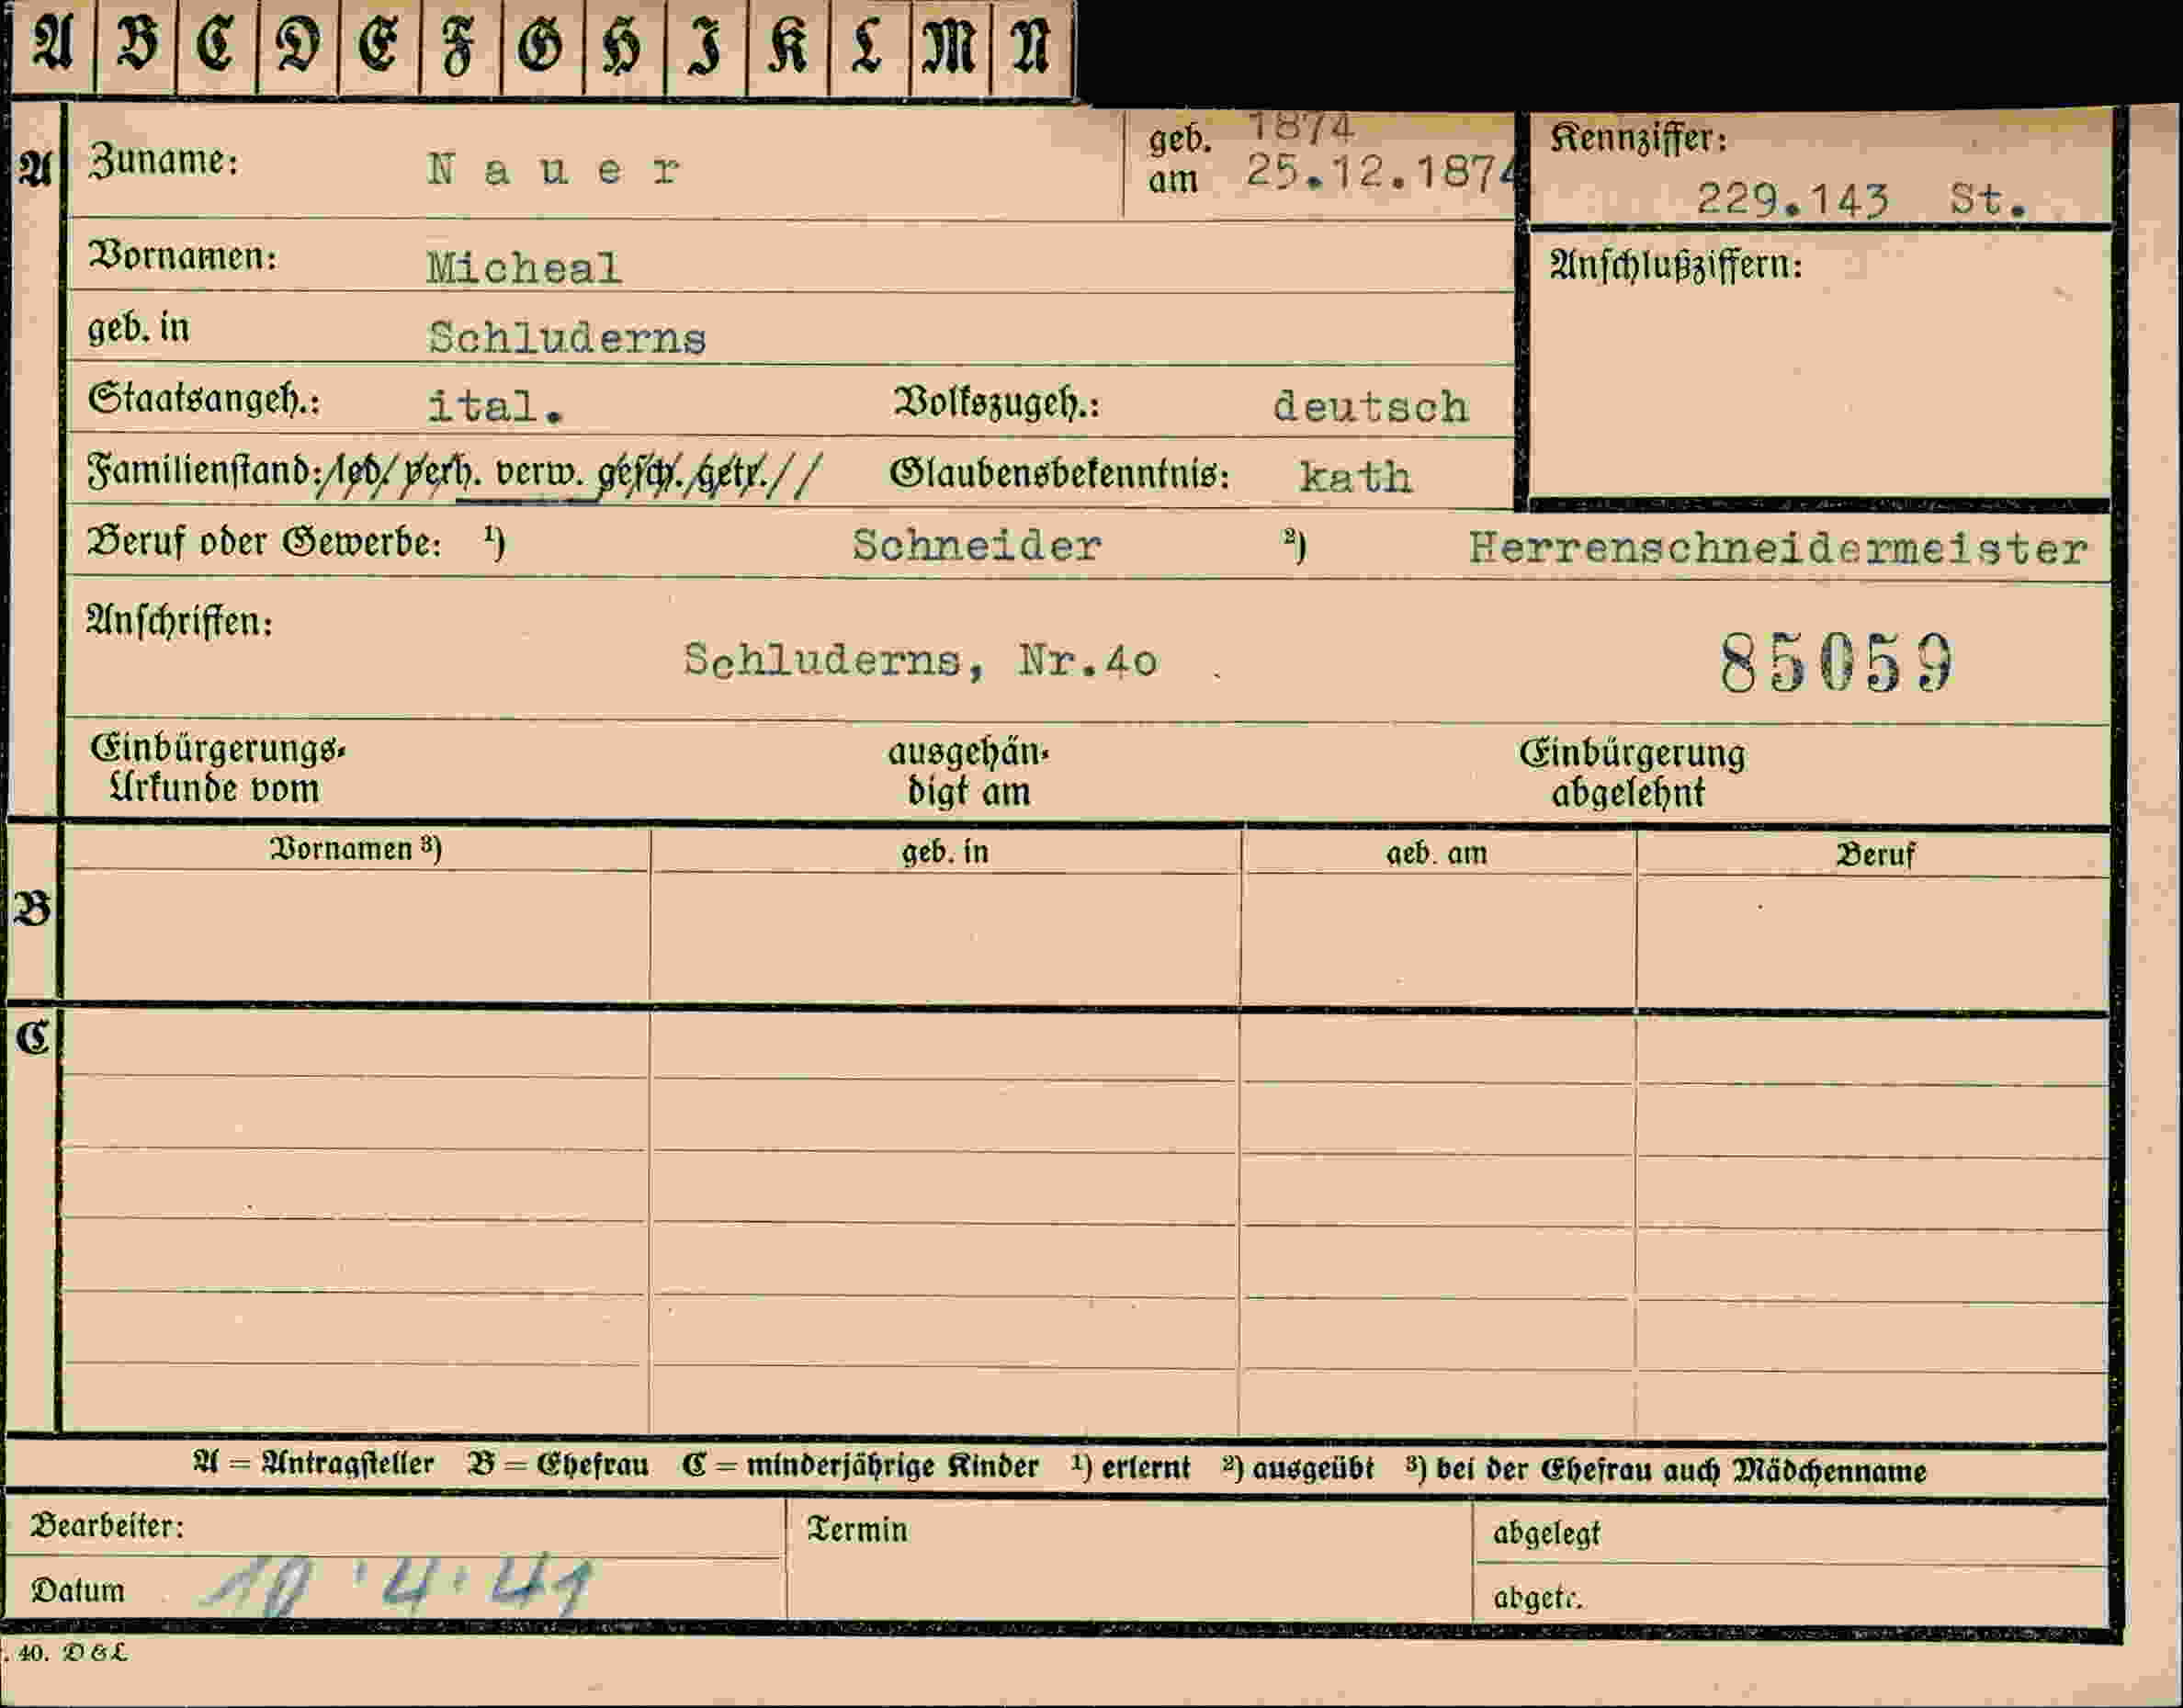 A B C D E F G H I K L M N
A Zuname: Nauer geb. am 1874 25.12.1874 Kennziffer: 229.143 St.
Vornamen: Micheal Anschlußziffern:
geb. in Schluderns
Staatsangeh.: ital. Volkszugeh.: deutsch
Familienstand: led. verh. verw. gesch. getr. Glaubensbekenntnis: kath
Beruf oder Gewerbe: ¹) Schneider ²) Herrenschneidermeister
Anschriften: Schluderns, Nr.4o 85059
Einbürgerungs- ausgehän- Einbürgerung
Urkunde vom digt am abgelehnt
Vornamen ³) geb. in geb. am Beruf
B
C
A = Antragsteller B = Ehefrau C = minderjährige Kinder ¹) erlernt ²) ausgeübt ³) bei der Ehefrau auch Mädchenname
Bearbeiter: Termin abgelegt
Datum 10.4.41 abgetr.
. 40. D&L